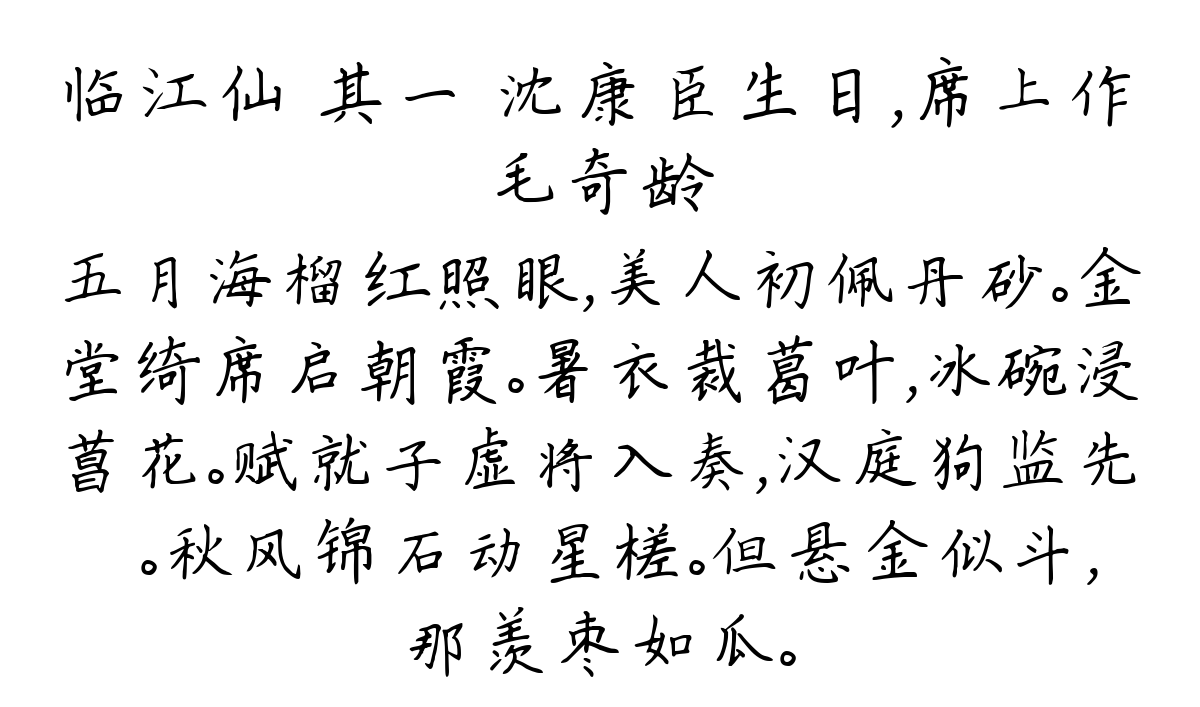 临江仙 其一 沈康臣生日,席上作
毛奇龄
五月海榴红照眼,美人初佩丹砂。金
堂绮席启朝霞。暑衣裁葛叶,冰碗浸
菖花。赋就子虚将入奏,汉庭狗监先
。秋风锦石动星槎。但悬金似斗,
那羡枣如瓜。